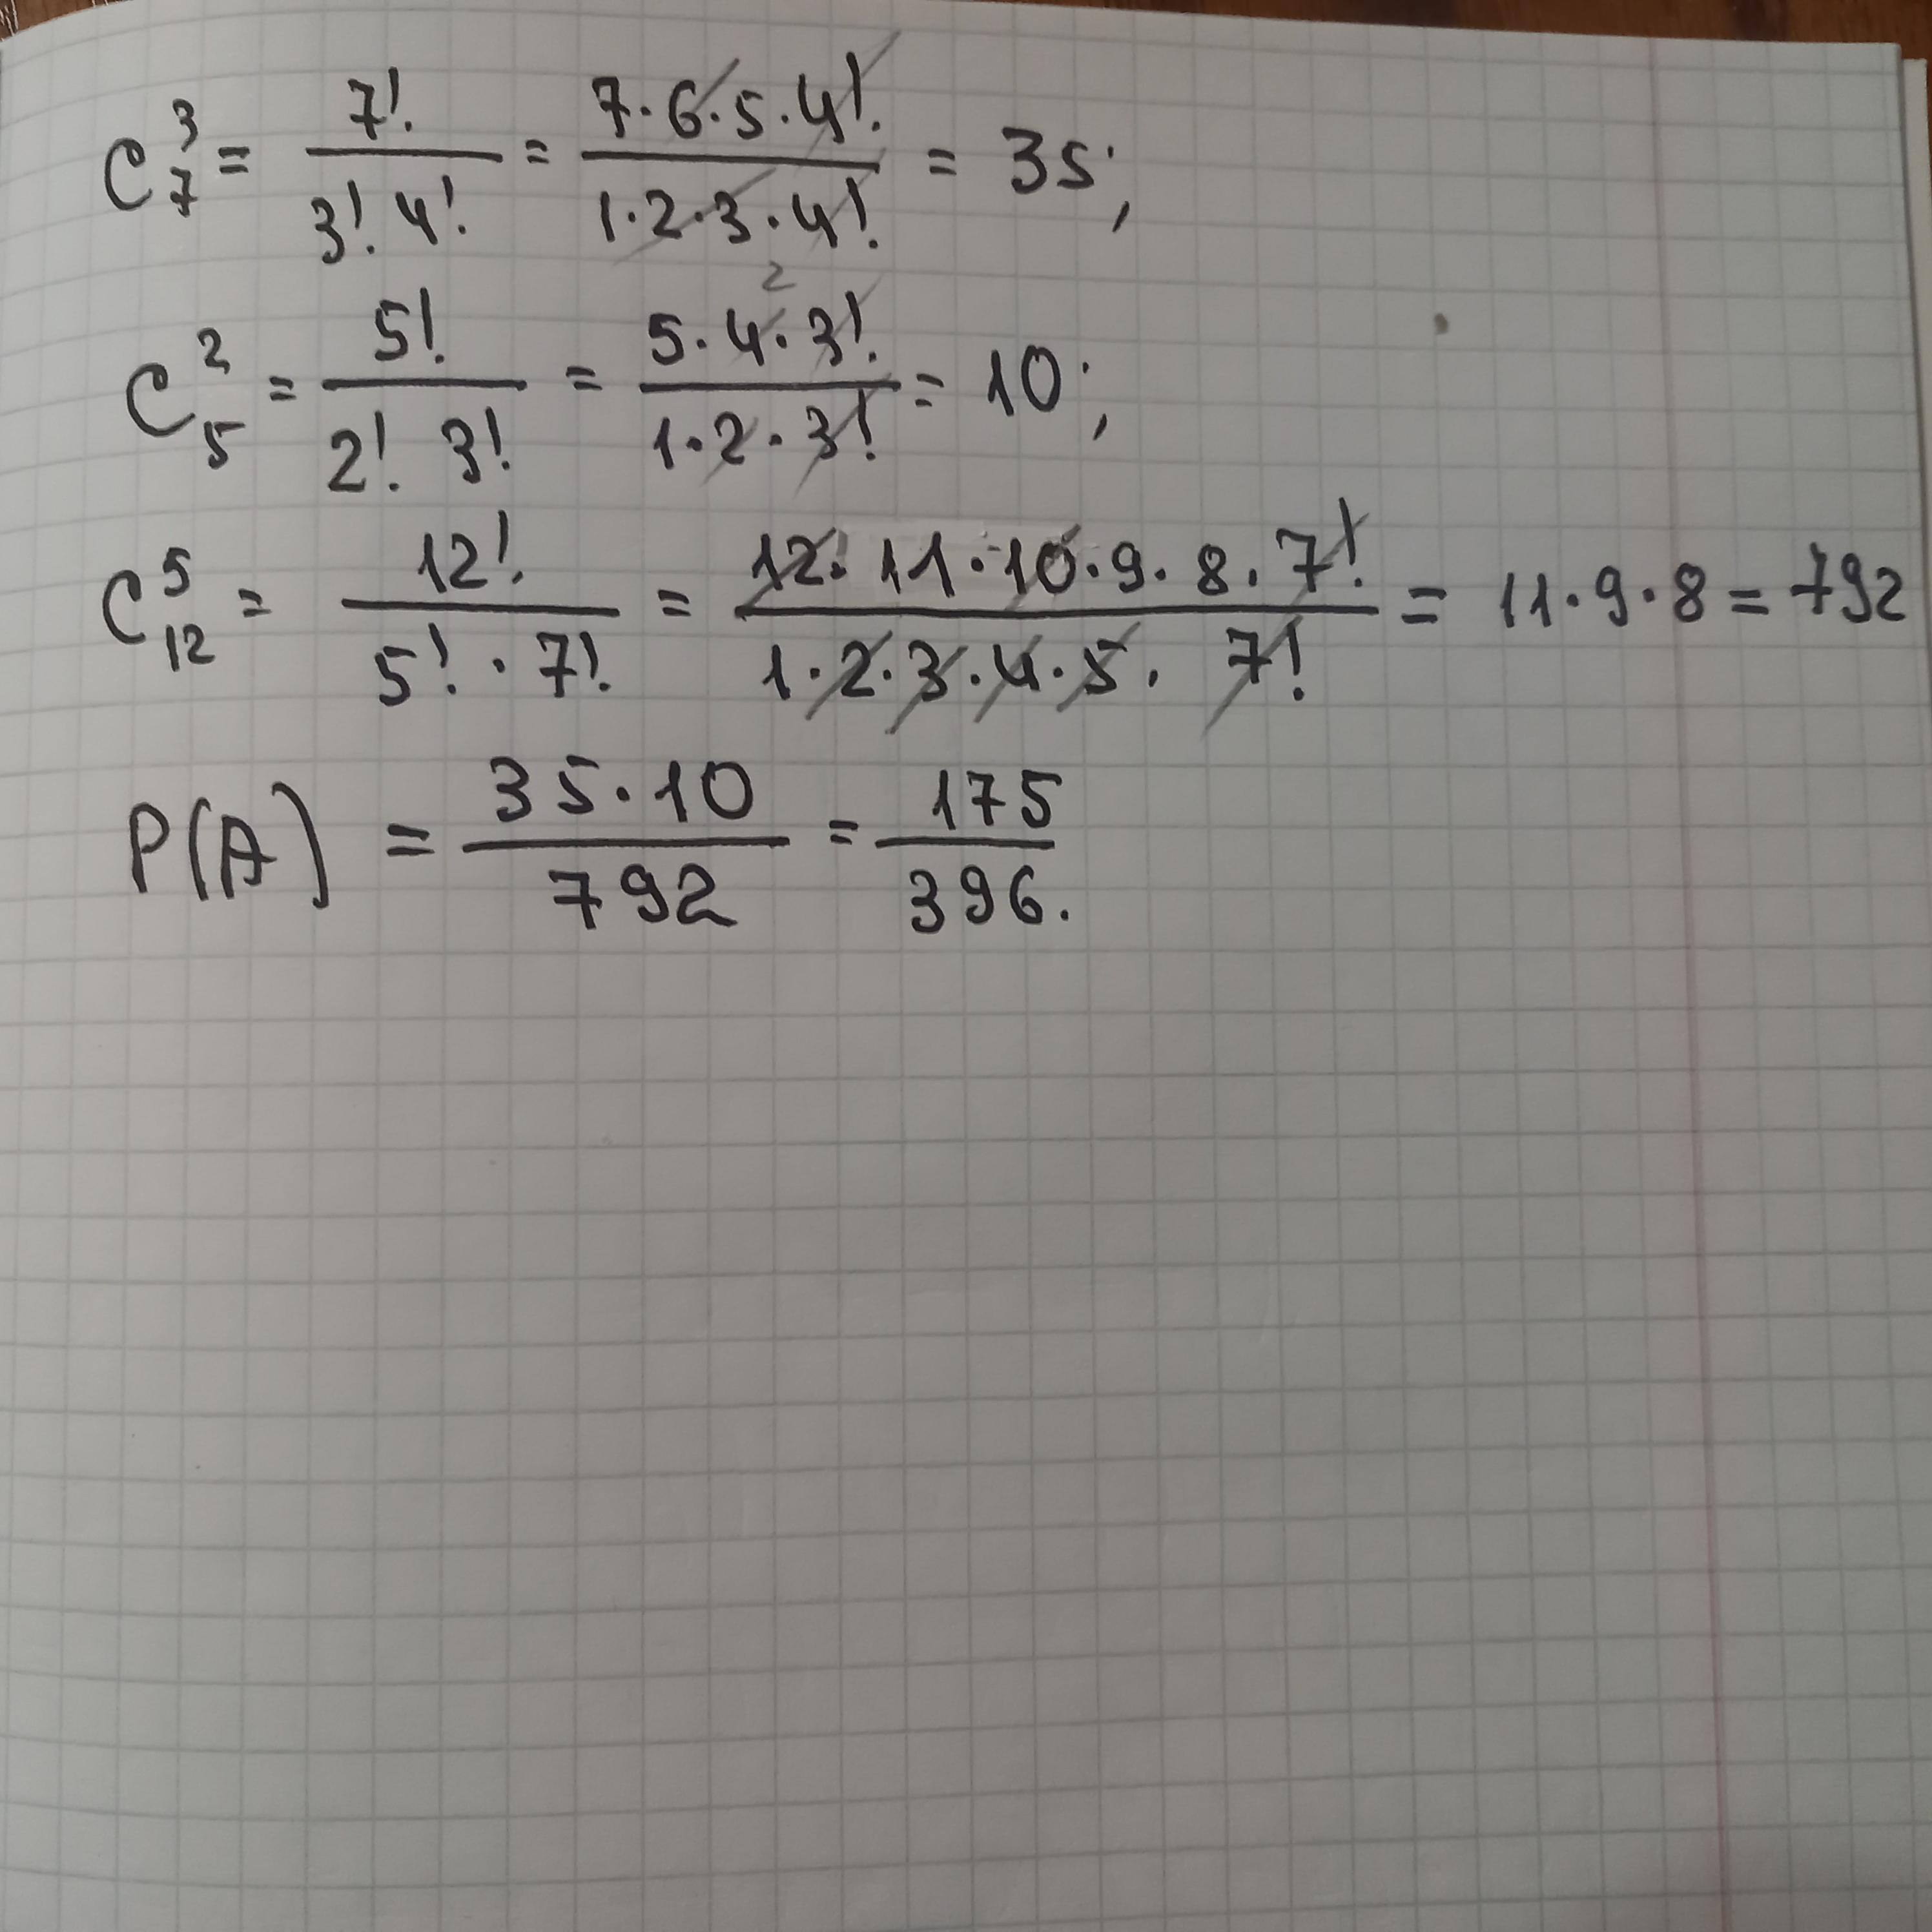 C₇³ = 7! / (3! 4!) = (7·6·5·4!) / (1·2·3·4!) = 35;
C₅² = 5! / (2! 3!) = (5·4²·3!) / (1·2·3!) = 10;
C₁₂⁵ = 12! / (5!·7!) = (12·11·10·9·8·7!) / (1·2·3·4·5·7!) = 11·9·8 = 792
P(A) = (35·10) / 792 = 175 / 396.